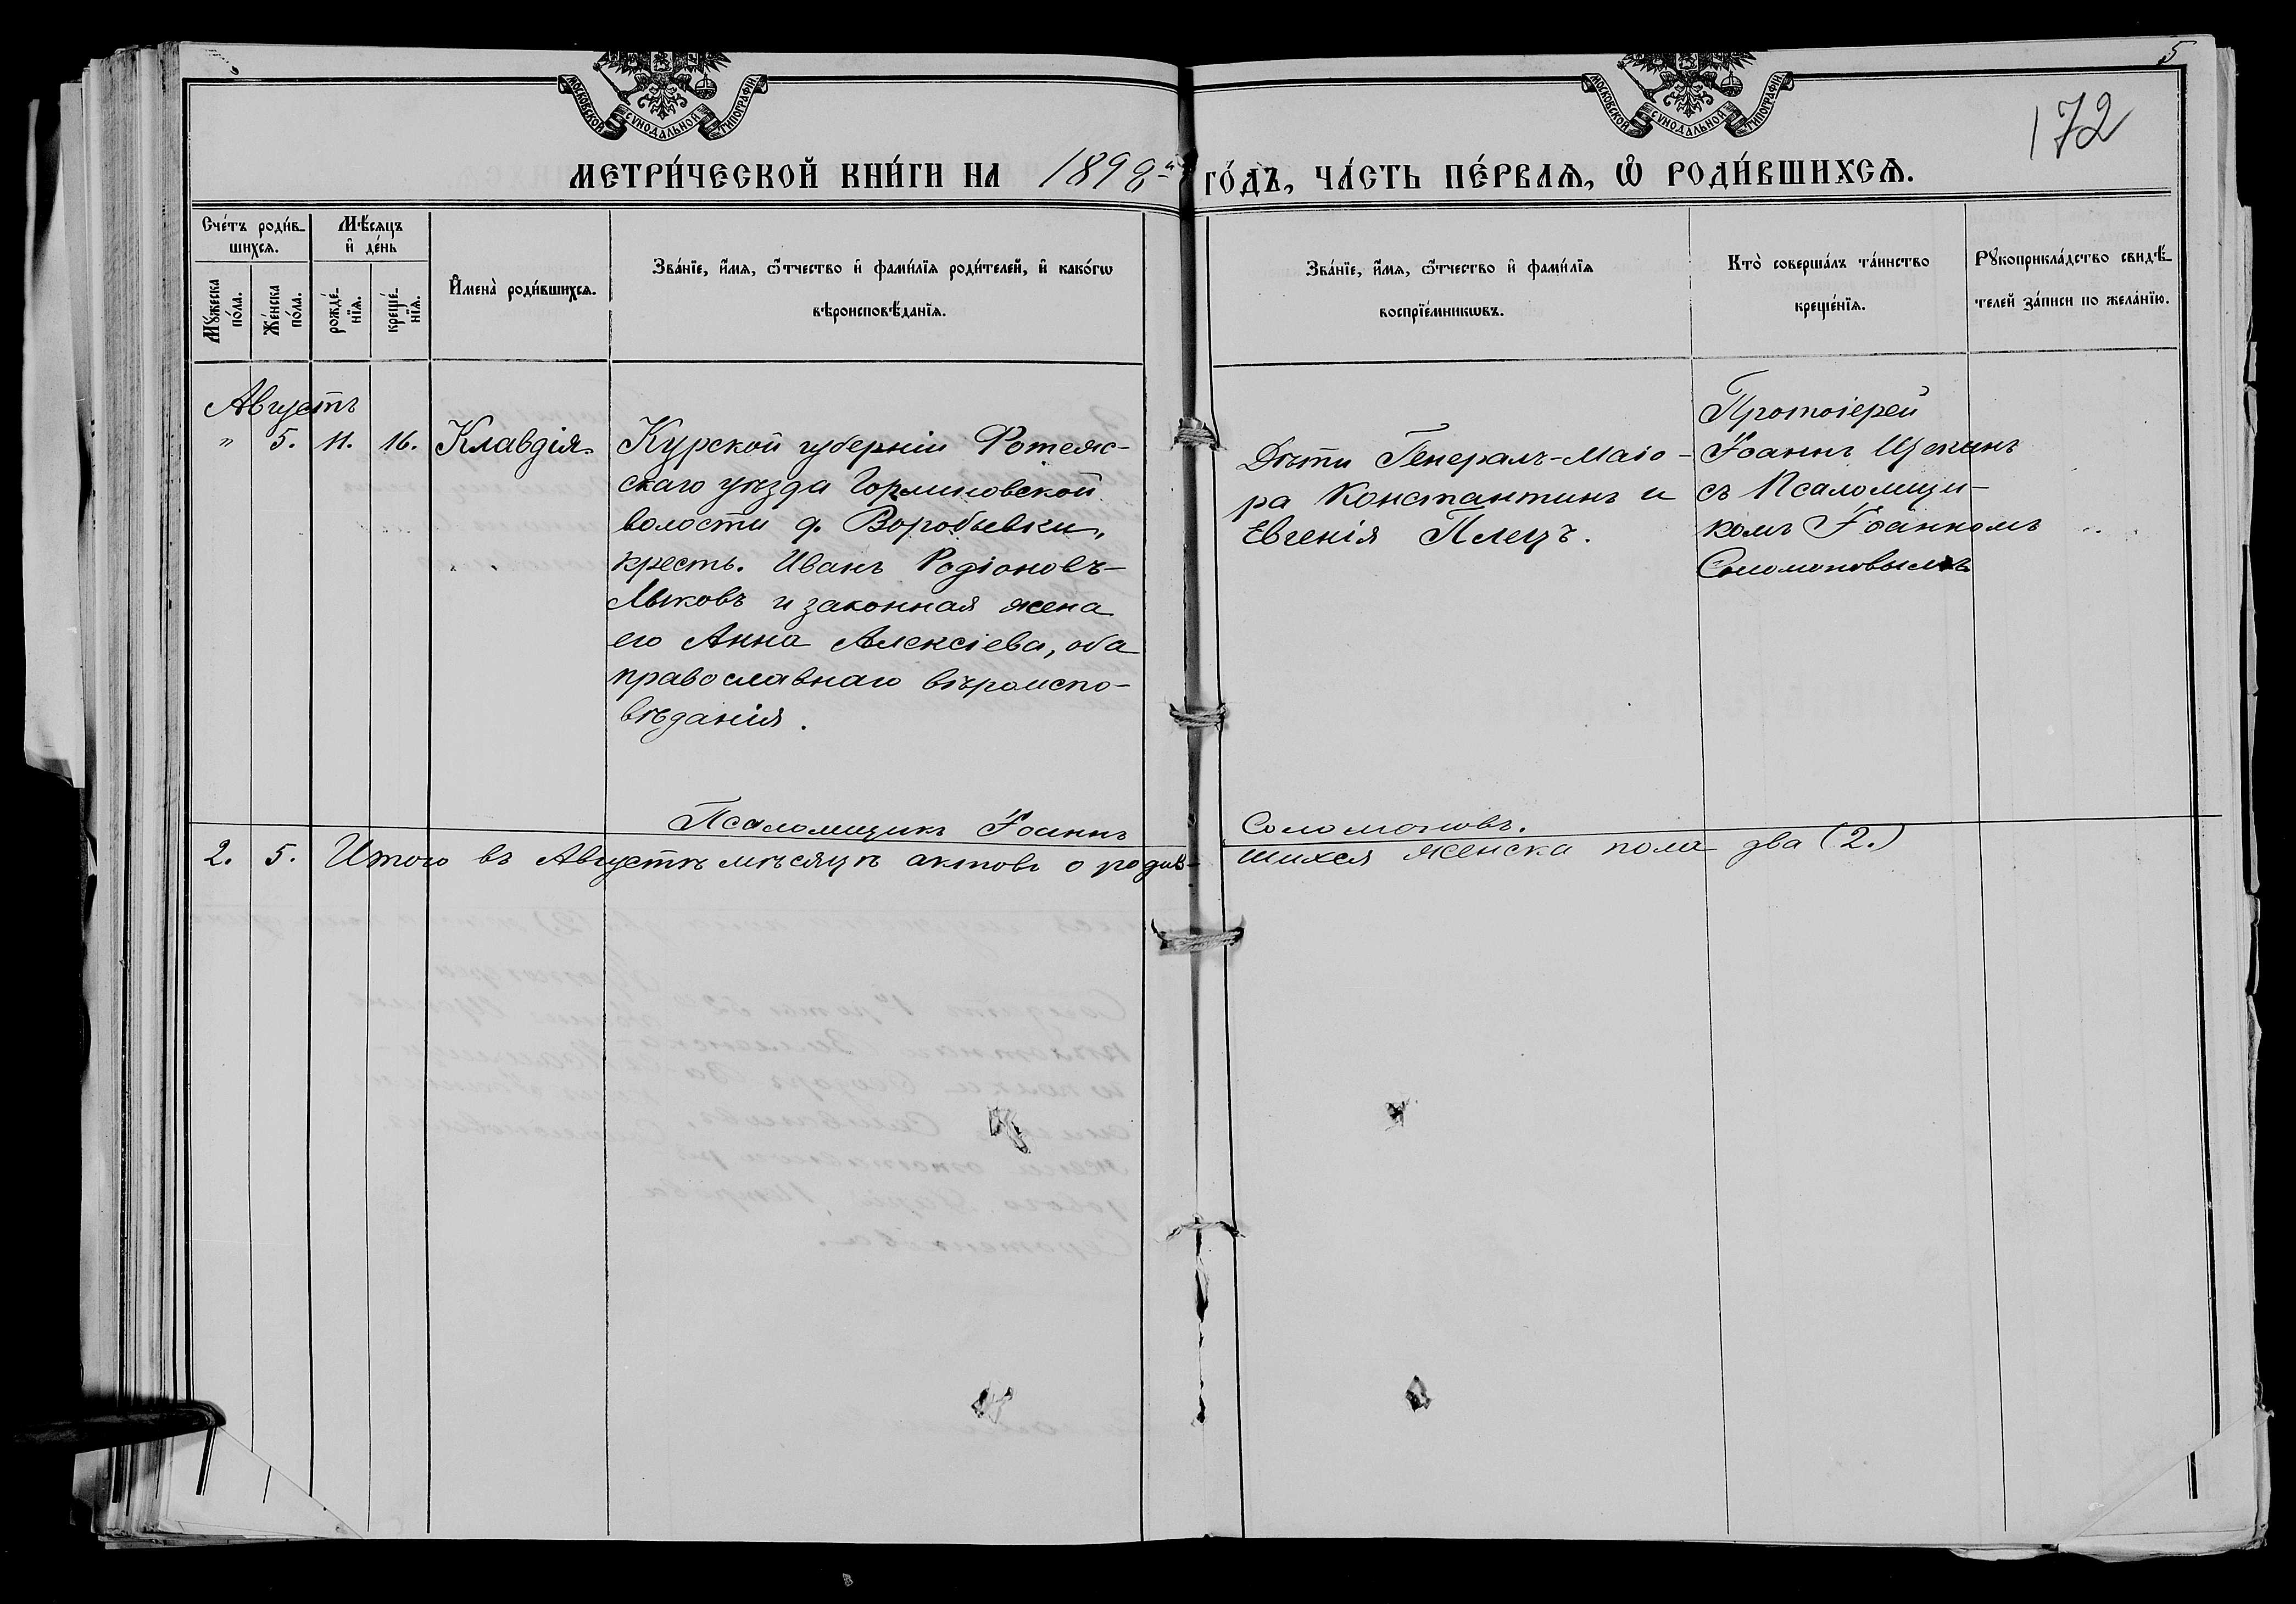 5
172
МОСКОВСКОЙ СѴНОДАЛЬНОЙ ТИПОГРАФІИ
МОСКОВСКОЙ СѴНОДАЛЬНОЙ ТИПОГРАФІИ
МЕТРИ́ЧЕСКОЙ КНИ́ГИ НА 1898й ГО́ДЪ, ЧА́СТЬ ПЕ́РВАѦ, Ѡ҆ РОДИ́ВШИХСѦ.
Сче́тъ роди́в-
шихсѧ.
Мꙋ́жеска
по́ла.
Же́нска
по́ла.
Мѣ́сяцъ
и҆ де́нь
рожде́-
нїѧ.
креще́-
нїѧ.
И҆мена̀ роди́вшихсѧ.
Зва́нїе, и҆́мѧ, ѻ҆́тчество и҆ фами́лїѧ роди́телей, и҆ како́гѡ
вѣроисповѣ́данїѧ.
Зва́нїе, и҆́мѧ, ѻ҆́тчество и҆ фами́лїѧ
воспрїе́мникѡвъ.
Кто̀ соверша́лъ та́инство
креще́нїѧ.
Рꙋкоприкла́дство свидѣ́-
телей за́писи по жела́нїю.
Августъ
" 5. 11. 16. Клавдія.
Курской губерніи
скаго уѣзда
волости д. Воробьевки,
кресть. Иванъ Родіоновъ-
Лыковъ и законная жена
его Анна Алексіева, оба
православнаго вѣроиспо-
вѣданія.
Дѣти Генералъ-Маіо-
ра Константинъ и
Евгенія Плецъ.
Протоіерей
Іоаннъ Щекинъ
съ Псаломщи-
комъ Іоанномъ
Соломоновымъ
Псаломщикъ Іоаннъ Соломоновъ.
2. 5. Итого въ Августѣ мѣсяцѣ актовъ о родив-
шихся женска пола два (2.)